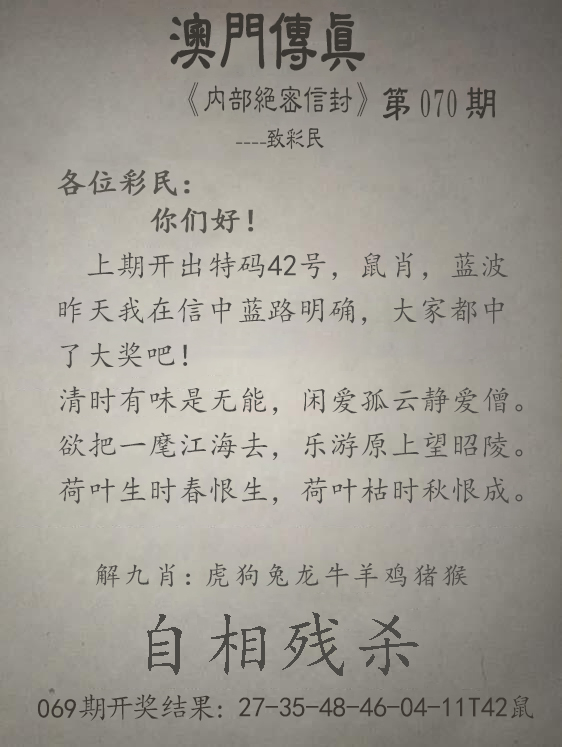 澳門傳眞
《内部絕密信封》第070期
----致彩民
各位彩民：
你们好！
上期开出特码42号，鼠肖，蓝波
昨天我在信中蓝路明确，大家都中
了大奖吧！
清时有味是无能，闲爱孤云静爱僧。
欲把一麾江海去，乐游原上望昭陵。
荷叶生时春恨生，荷叶枯时秋恨成。
解九肖：虎狗兔龙牛羊鸡猪猴
自相残杀
069期开奖结果：27-35-48-46-04-11T42鼠